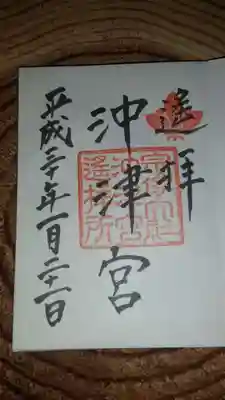 遙拝
沖津宮
平成三十年一月二十一日
宗像大社沖津宮遙拝所